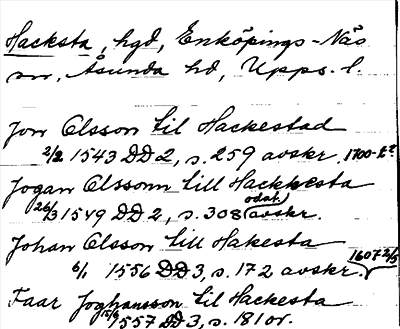 Hacksta, hgd, Enköpings-Näs
sn, Åsunda hd, Upps. l.
Jon Olsson til Hackestad
2/2 1543 DD 2, s. 259 avskr. 1700-t?
Jogan Olssonn till Hackhesta
26/3 1549 DD 2, s. 308 odat. avskr.
Johan Olsson till Hakesta
6/1 1556 DD 3, s. 172 avskr. 1607 2/5
Faar Joghansson til Hackesta
15/6 1557 DD 3, s. 181 or.